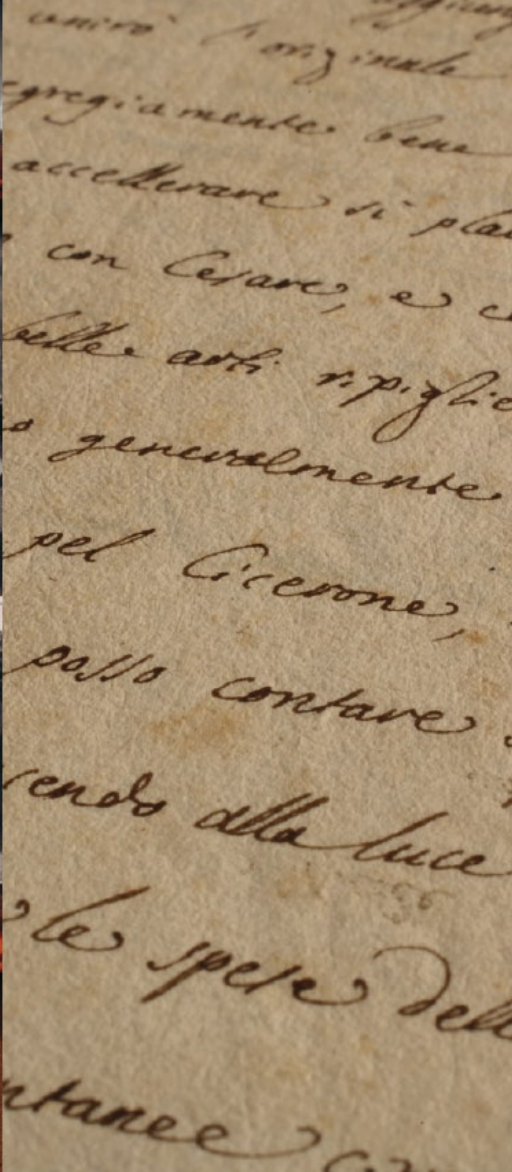 unirò l'originale
egregiamente bene
accellerare si
con Cesare, e
belle arti
generalmente
pel Cicerone,
posso contare
cendo alla luce
le spese
ntanee